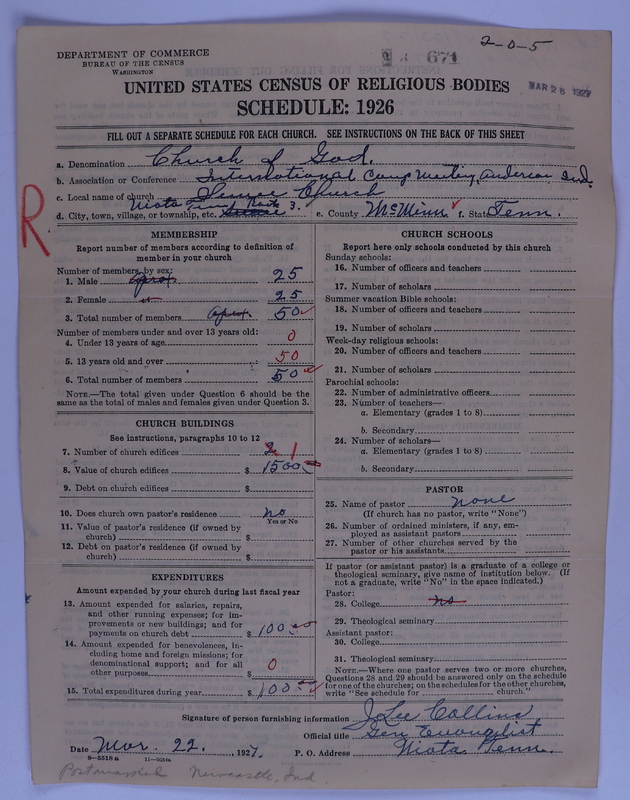 2-0-5
671
DEPARTMENT OF COMMERCE
BUREAU OF THE CENSUS
WASHINGTON
MAR 28 1927
UNITED STATES CENSUS OF RELIGIOUS BODIES
SCHEDULE: 1926
FILL OUT A SEPARATE SCHEDULE FOR EACH CHURCH. SEE INSTRUCTIONS ON THE BACK OF THIS SHEET
a. Denomination Church of God.
b. Association or Conference International Camp Meeting, Anderson Ind.
c. Local name of church Church
d. City, town, village, or township, etc. Niota Tenn Route 3. e. County McMinn f. State Tenn.
R
MEMBERSHIP
Report number of members according to definition of
member in your church
Number of members, by sex:
1. Male 25
2. Female 25
3. Total number of members 50
Number of members under and over 13 years old:
4. Under 13 years of age 0
5. 13 years old and over 50
6. Total number of members 50
NOTE.—The total given under Question 6 should be the
same as the total of males and females given under Question 3.
CHURCH BUILDINGS
See instructions, paragraphs 10 to 12
7. Number of church edifices 1
8. Value of church edifices $ 1500
9. Debt on church edifices $
10. Does church own pastor's residence no
Yes or No
11. Value of pastor's residence (if owned by
church) $
12. Debt on pastor's residence (if owned by
church) $
EXPENDITURES
Amount expended by your church during last fiscal year
13. Amount expended for salaries, repairs,
and other running expenses; for im-
provements or new buildings; and for
payments on church debt $ 100.00
14. Amount expended for benevolences, in-
cluding home and foreign missions; for
denominational support; and for all
other purposes $ 0
15. Total expenditures during year $ 100.00
CHURCH SCHOOLS
Report here only schools conducted by this church
Sunday schools:
16. Number of officers and teachers
17. Number of scholars
Summer vacation Bible schools:
18. Number of officers and teachers
19. Number of scholars
Week-day religious schools:
20. Number of officers and teachers
21. Number of scholars
Parochial schools:
22. Number of administrative officers
23. Number of teachers—
a. Elementary (grades 1 to 8)
b. Secondary
24. Number of scholars—
a. Elementary (grades 1 to 8)
b. Secondary
PASTOR
25. Name of pastor none
(If church has no pastor, write "None")
26. Number of ordained ministers, if any, em-
ployed as assistant pastors
27. Number of other churches served by the
pastor or his assistants
If pastor (or assistant pastor) is a graduate of a college or
theological seminary, give name of institution below. (If
not a graduate, write "No" in the space indicated.)
Pastor:
28. College no
29. Theological seminary
Assistant pastor:
30. College
31. Theological seminary
NOTE.—Where one pastor serves two or more churches,
Questions 28 and 29 should be answered only on the schedule
for one of the churches; on the schedules for the other churches,
write "See schedule for church."
Signature of person furnishing information J Lee Collins
Official title Gen Evangelist
Date Mar. 22. 1927. P. O. Address Niota Tenn.
8—5518a 11—9054a
Postmarked Newcastle, Ind.